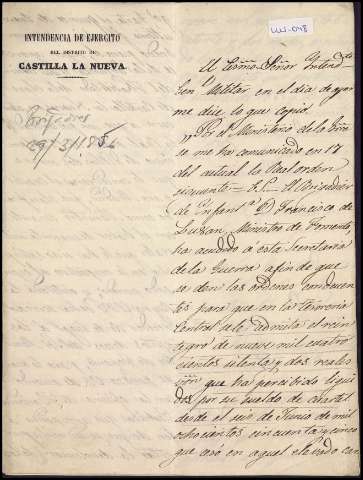 INTENDENCIA DE EJERCITO
DEL DISTRITO DE
CASTILLA LA NUEVA.
29/3/1856
El Ecsmo. Señor Intendte
Gen.l Militar en el dia de ayer
me dice lo que copio.
"Por el Ministerio de la Grra
se me ha comunicado en 17
del actual la Real orden
siguiente = E. S. = El Brigadier
de Infant.a D. Francisco de
Luxan, Ministro de Fomento,
ha acudido á esta Secretaria
de la Guerra afin de que
se den las ordenes convenientes
para que en la Tesoreria
Central se le admita el rein
tegro de nueve mil cuatro
cientos setenta y dos reales
que ha percibido liqui
dos por su sueldo de cuartel
desde el seis de Junio de mil
ochocientos cincuenta y cinco
que cesó en aquel elevado car